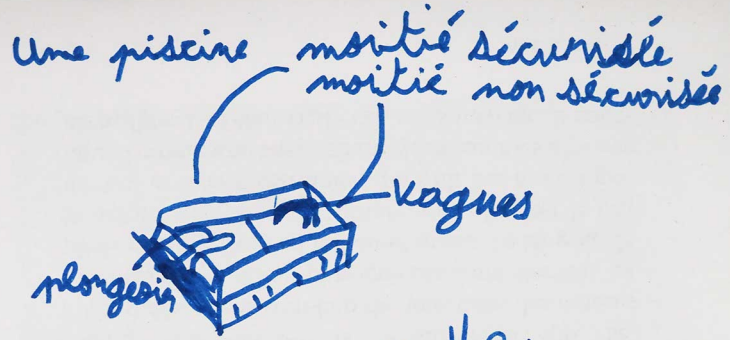 Une piscine moitié sécurisée
moitié non sécurisée
vagues
plongeoir